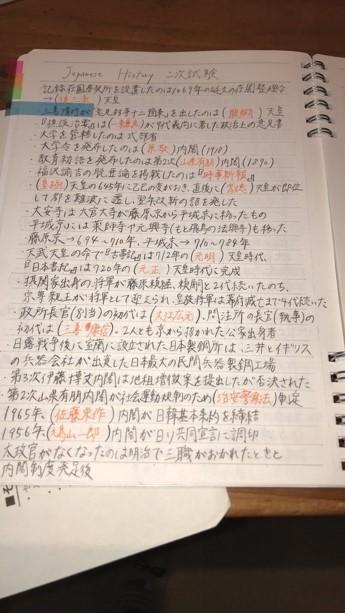 Japanese History 二次試験
・記録荘園券契所を設置したのは1069年の延久の荘園整理令
→(後三条)天皇
三善清行が「意見封事十二箇条」を出したのは(醍醐)天皇
『樵談治要』は(一条兼良)が9代義尚に著した政治上の意見書
・大学を管轄したのは式部省
・大学令を発布したのは(原敬)内閣(1918)
・教育勅語を発布したのは第1次(山県有朋)内閣(1890)
・福沢諭吉の脱亜論を掲載したのは『時事新報』
・(皇極)天皇の645年に乙巳の変がおき、直後に(孝徳)天皇が即位
して都を難波に遷し、翌年改新の詔を発した
・大安寺は大官大寺が藤原京から平城京に移ったもの
平城京には薬師寺や元興寺(もと飛鳥の法興寺)も移った
・藤原京→694〜710年、平城京→710〜784年
・天武天皇の命で『古事記』は712年の(元明)天皇時代、
『日本書紀』は720年の(元正)天皇時代に完成
・摂関家出身の将軍が藤原頼経、頼嗣と2代続いたのち、
宗尊親王が将軍として迎えられ、皇族将軍は幕府滅亡まで4代続いた
・政所長官(別当)の初代は(大江広元)、問注所の長官(執事)の
初代は(三善康信)。2人とも京から招かれた公家出身者
・日露戦争後に室蘭に設立された日本製鋼所は、三井とイギリス
の兵器会社が出資した日本最大の民間兵器製鋼工場
・第3次伊藤博文内閣は地租増徴案を提出したが否決された
・第2次山県有朋内閣が社会運動規制のため(治安警察法)制定
1965年、(佐藤栄作)内閣が日韓基本条約を締結
1956年、(鳩山一郎)内閣が日ソ共同宣言に調印
太政官がなくなったのは明治で三職がおかれたときと
内閣制度発足後